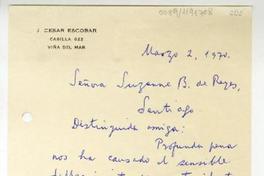 J. CESAR ESCOBAR
CASILLA 622
VIÑA DEL MAR
Marzo 2, 1970.
Señora Suzanne B. de Reyes,
Santiago
Distinguida amiga:
Profunda pena
nos ha causado el sensible